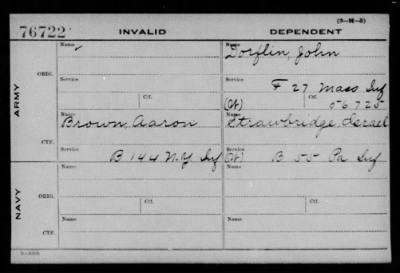 76722
INVALID
DEPENDENT
(3-H-3)
ARMY
ORIG.
Name
Name
Torflin, John
Service
Service
F 27 Mass Inf
Ctf.
(Ct)
Ctf.
56725
CTF.
Name
Brown, Aaron
Name
Strawbridge, Israel
Service
B 144 N.Y Inf
Service
(Ct)
B 55 Pa Inf
NAVY
ORIG.
Name
Name
Ctf.
Ctf.
CTF.
Name
Name